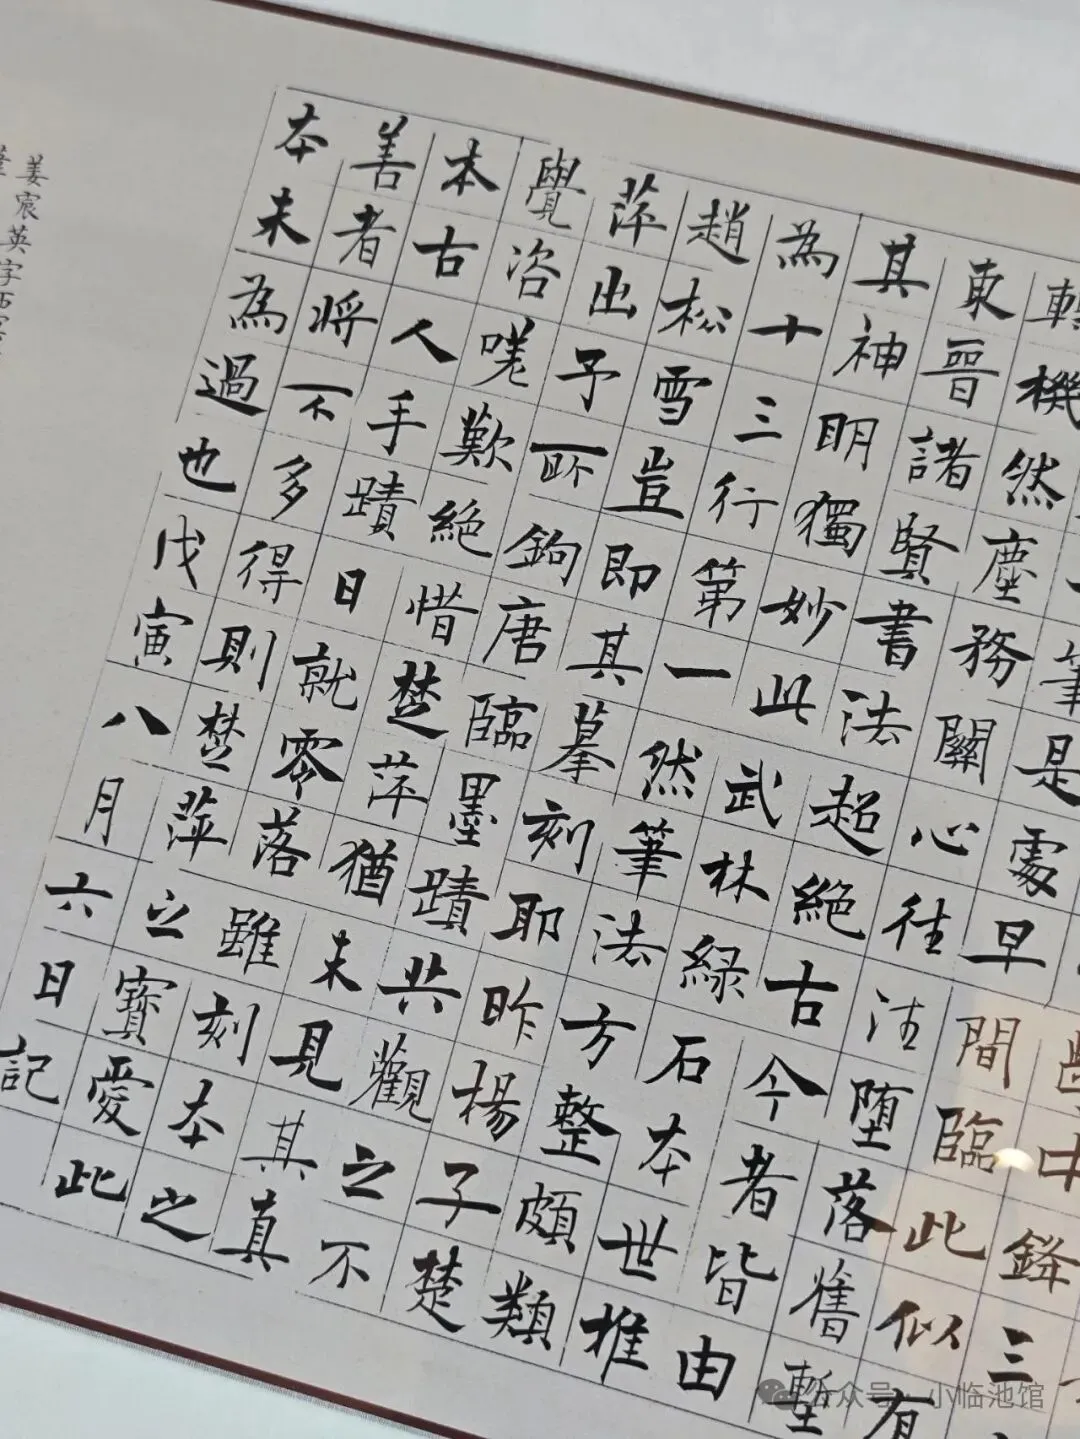 中鋒三
筆是處早間臨此似有
機然塵務關心往往墮落舊蹔
東晉諸賢書法超絕古今者皆由
其神明獨妙此武林綠石本世推
為十三行第一然筆法方整頗類
趙松雪豈即其摹刻耶昨楊子楚
萍出予所鉤唐臨墨蹟共觀之不
覺咨嗟歎絕惜楚萍猶未見其真
本古人手蹟日就零落雖刻本之
善者將不多得則楚萍之寶愛此
本未為過也戊寅八月六日記
姜宸英字西
公众号 · 小临池馆